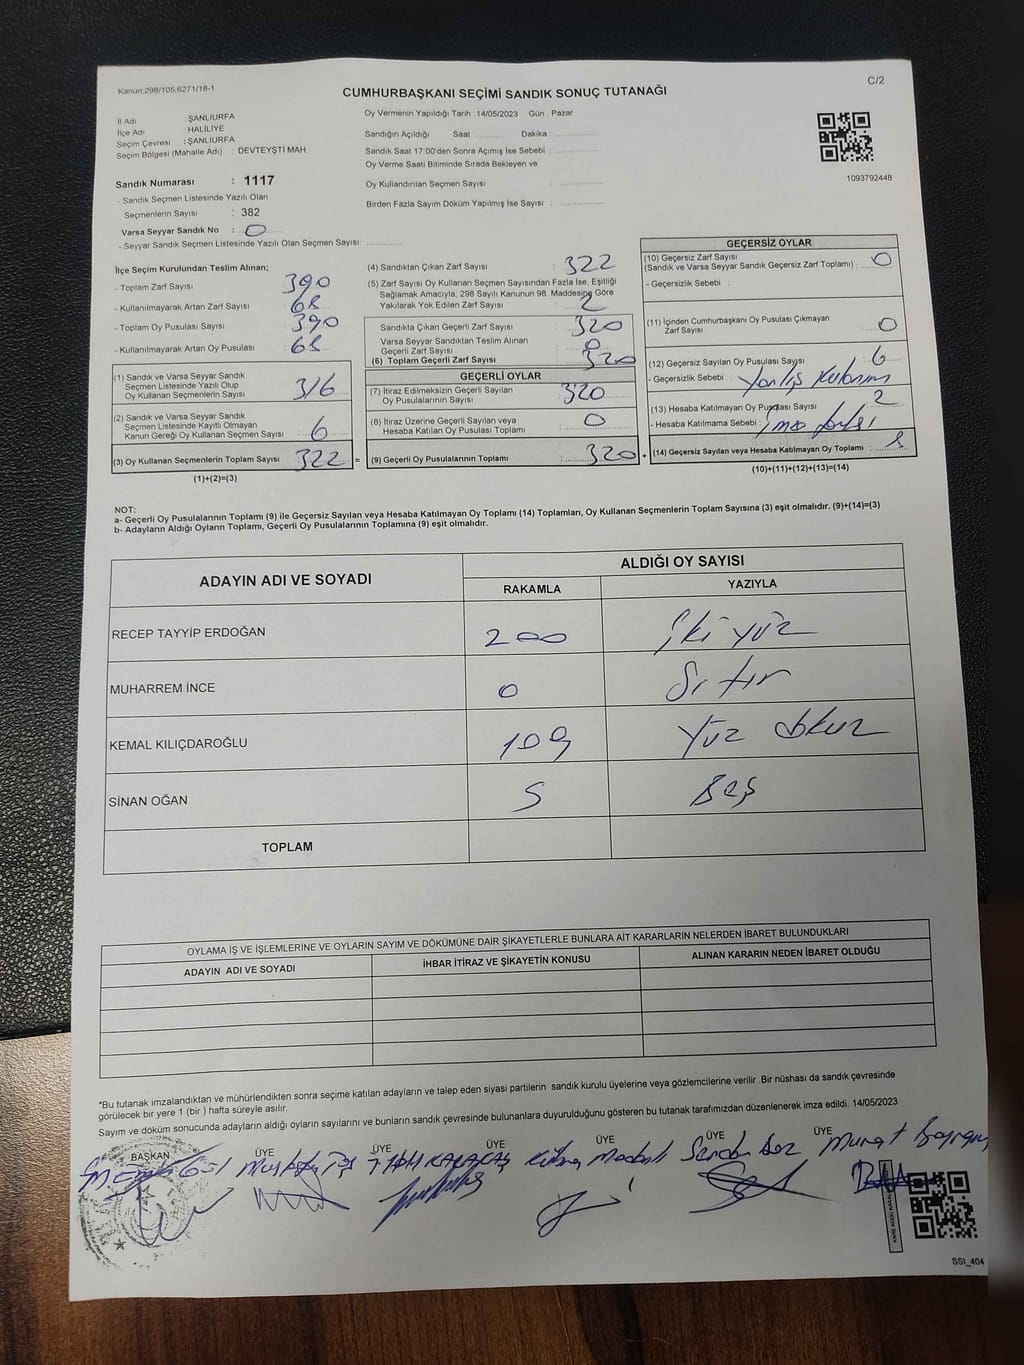 Kanun:298/105;6271/18-1
C/2
CUMHURBAŞKANI SEÇİMİ SANDIK SONUÇ TUTANAĞI
İl Adı : ŞANLIURFA
İlçe Adı : HALİLİYE
Seçim Çevresi : ŞANLIURFA
Seçim Bölgesi (Mahalle Adı) : DEVTEYŞTİ MAH
Oy Vermenin Yapıldığı Tarih : 14/05/2023 Gün : Pazar
Sandığın Açıldığı Saat ........... Dakika :
Sandık Saat 17:00'den Sonra Açımış İse Sebebi :
Oy Verme Saati Bitiminde Sırada Bekleyen ve
Oy Kullandırılan Seçmen Sayısı :
Birden Fazla Sayım Döküm Yapılmış İse Sayısı :
1093792448
Sandık Numarası : 1117
- Sandık Seçmen Listesinde Yazılı Olan
Seçmenlerin Sayısı : 382
Varsa Seyyar Sandık No : 0
- Seyyar Sandık Seçmen Listesinde Yazılı Olan Seçmen Sayısı:
İlçe Seçim Kurulundan Teslim Alınan;
- Toplam Zarf Sayısı : 390
- Kullanılmayarak Artan Zarf Sayısı : 68
- Toplam Oy Pusulası Sayısı : 390
- Kullanılmayarak Artan Oy Pusulası : 68
(1) Sandık ve Varsa Seyyar Sandık
Seçmen Listesinde Yazılı Olup
Oy Kullanan Seçmenlerin Sayısı : 316
(2) Sandık ve Varsa Seyyar Sandık
Seçmen Listesinde Kayıtlı Olmayan
Kanun Gereği Oy Kullanan Seçmen Sayısı : 6
(3) Oy Kullanan Seçmenlerin Toplam Sayısı : 322 =
(1)+(2)=(3)
(4) Sandıktan Çıkan Zarf Sayısı : 322
(5) Zarf Sayısı Oy Kullanan Seçmen Sayısından Fazla İse, Eşitliği
Sağlamak Amacıyla, 298 Sayılı Kanunun 98. Maddesine Göre
Yakılarak Yok Edilen Zarf Sayısı : 2
Sandıkta Çıkan Geçerli Zarf Sayısı : 320
Varsa Seyyar Sandıktan Teslim Alınan
Geçerli Zarf Sayısı : 0
(6) Toplam Geçerli Zarf Sayısı : 320
GEÇERLİ OYLAR
(7) İtiraz Edilmeksizin Geçerli Sayılan
Oy Pusulalarının Sayısı : 320
(8) İtiraz Üzerine Geçerli Sayılan veya
Hesaba Katılan Oy Pusulası Toplamı : 0
(9) Geçerli Oy Pusulalarının Toplamı : 320 +
GEÇERSİZ OYLAR
(10) Geçersiz Zarf Sayısı
(Sandık ve Varsa Seyyar Sandık Geçersiz Zarf Toplamı) : 0
- Geçersizlik Sebebi :
(11) İçinden Cumhurbaşkanı Oy Pusulası Çıkmayan
Zarf Sayısı : 0
(12) Geçersiz Sayılan Oy Pusulası Sayısı : 6
- Geçersizlik Sebebi : Yanlış kullanım
(13) Hesaba Katılmayan Oy Pusulası Sayısı : 2
- Hesaba Katılmama Sebebi :
(14) Geçersiz Sayılan veya Hesaba Katılmayan Oy Toplamı : 8
(10)+(11)+(12)+(13)=(14)
NOT:
a- Geçerli Oy Pusulalarının Toplamı (9) ile Geçersiz Sayılan veya Hesaba Katılmayan Oy Toplamı (14) Toplamları, Oy Kullanan Seçmenlerin Toplam Sayısına (3) eşit olmalıdır. (9)+(14)=(3)
b- Adayların Aldığı Oyların Toplamı, Geçerli Oy Pusulalarının Toplamına (9) eşit olmalıdır.
ADAYIN ADI VE SOYADI
ALDIĞI OY SAYISI
RAKAMLA YAZIYLA
RECEP TAYYİP ERDOĞAN 200 iki yüz
MUHARREM İNCE 0 Sıfır
KEMAL KILIÇDAROĞLU 109 Yüz dokuz
SİNAN OĞAN 5 Beş
TOPLAM
OYLAMA İŞ VE İŞLEMLERİNE VE OYLARIN SAYIM VE DÖKÜMÜNE DAİR ŞİKAYETLERLE BUNLARA AİT KARARLARIN NELERDEN İBARET BULUNDUKLARI
ADAYIN ADI VE SOYADI İHBAR İTİRAZ VE ŞİKAYETİN KONUSU ALINAN KARARIN NEDEN İBARET OLDUĞU
*Bu tutanak imzalandıktan ve mühürlendikten sonra seçime katılan adayların ve talep eden siyasi partilerin sandık kurulu üyelerine veya gözlemcilerine verilir .Bir nüshası da sandık çevresinde
görülecek bir yere 1 (bir ) hafta süreyle asılır.
Sayım ve döküm sonucunda adayların aldığı oyların sayılarını ve bunların sandık çevresinde bulunanlara duyurulduğunu gösteren bu tutanak tarafımızdan düzenlenerek imza edildi. 14/05/2023
BAŞKAN ÜYE ÜYE ÜYE ÜYE ÜYE ÜYE
KARAKAŞ Murat
SSI_404